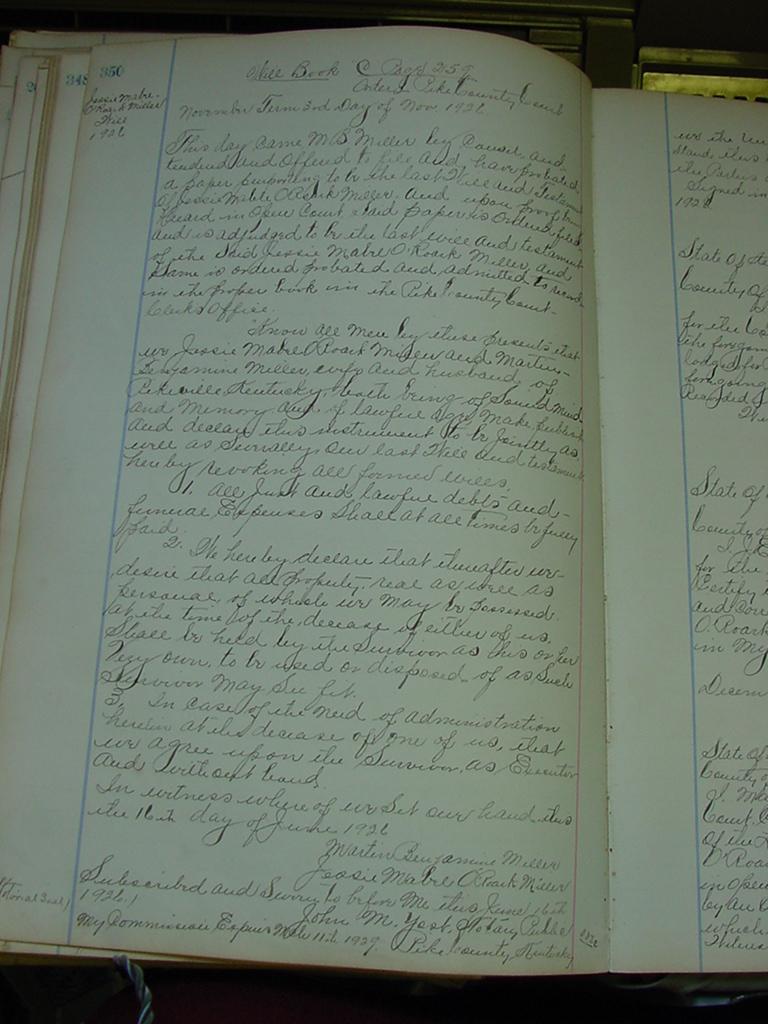 348
350
Jessie Mabre-
O'Roark Miller
Will
1926
Will Book C Page 259
Orders Pike County Court
November Term 3rd Day of Nov 1926
This day came M B Miller by Counsel and
tendered and offered to file and have probated
a paper purporting to be the last Will and Testament
of Jessie Mabre O'Roark Miller. and upon proof
heard in open Court said paper is ordered filed
and is adjudged to be the last will and testament
of the said Jessie Mabre O'Roark Miller, and
same is ordered probated and admitted to record
in the proper book in the Pike County Court-
Clerks Office.
Know all men by these presents that
we Jessie Mabre O'Roark Miller and Martin-
Benjamine Miller, wife and husband, of
Pikeville, Kentucky, both being of sound mind
and memory and of lawful age make, publish
and declare this instrument to be jointly as
well as severally our last Will and testament
hereby revoking all former wills.
1. All just and lawful debts and-
funeral Expenses shall at all times be fully
paid.
2. We hereby declare that thereafter we-
desire that all property, real as well as
personal, of which we may be possessed
at the time of the decease of either of us,
shall be held by the survivor as his or her
very own, to be used or disposed of as such
survivor may see fit.
3. In case of the need of administration
herein at the decease of one of us, that
we agree upon the survivor, as Executor
and without bond.
In witness where of we set our hands this
the 16th day of June 1926
Martin Benjamine Miller
Jessie Mabre O'Roark Miller
Subscribed and Sworn to before me this June 16th
1926.
John M. Yost, Notary Public
My Commission Expires Mch 11th 1929 Pike County Kentucky
Stand this
the Parties
Signed in
1926
State of
County of
for the
the foregoing
lodged for
foregoing
Recorded
State of
County of
for the
Certify
and
O'Roark
in my
Decem
State of
County of
Court.
of the
O'Roark
in open
by an
which